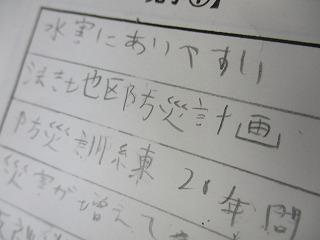 水害にありやすい
法吉地区防災計画
防災訓練 21年間
災害が増えて